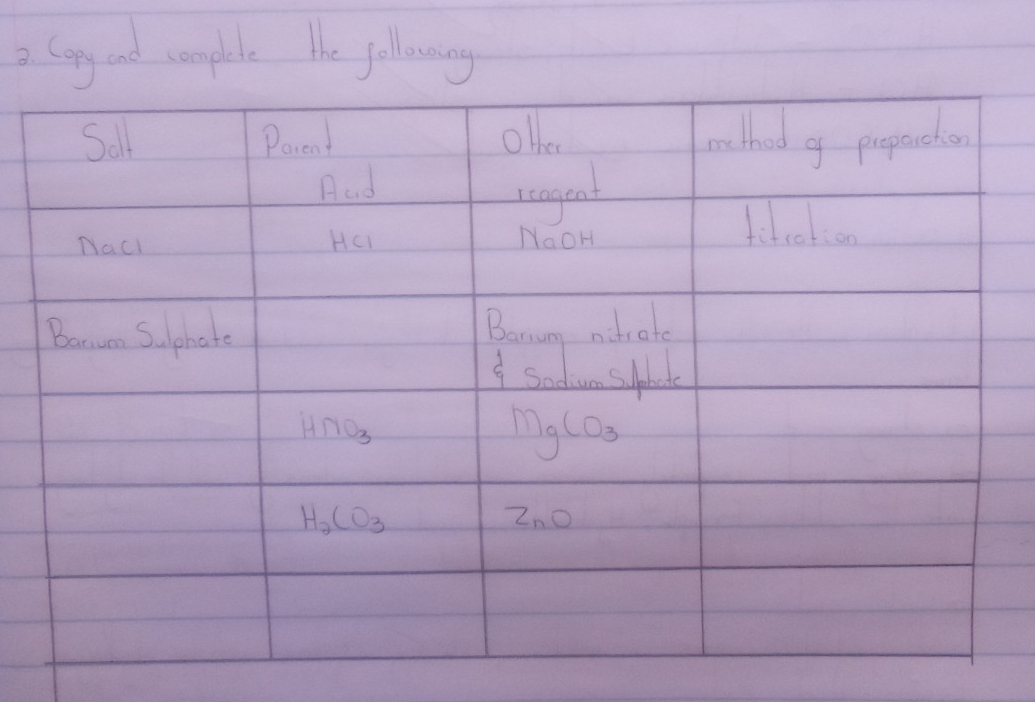 2. Copy and complete the following
Salt Parent Acid Other reagent method of preparation
NaCl HCl NaOH titration
Barium Sulphate Barium nitrate & Sodium Sulphate
HNO₃ MgCO₃
H₂CO₃ ZnO